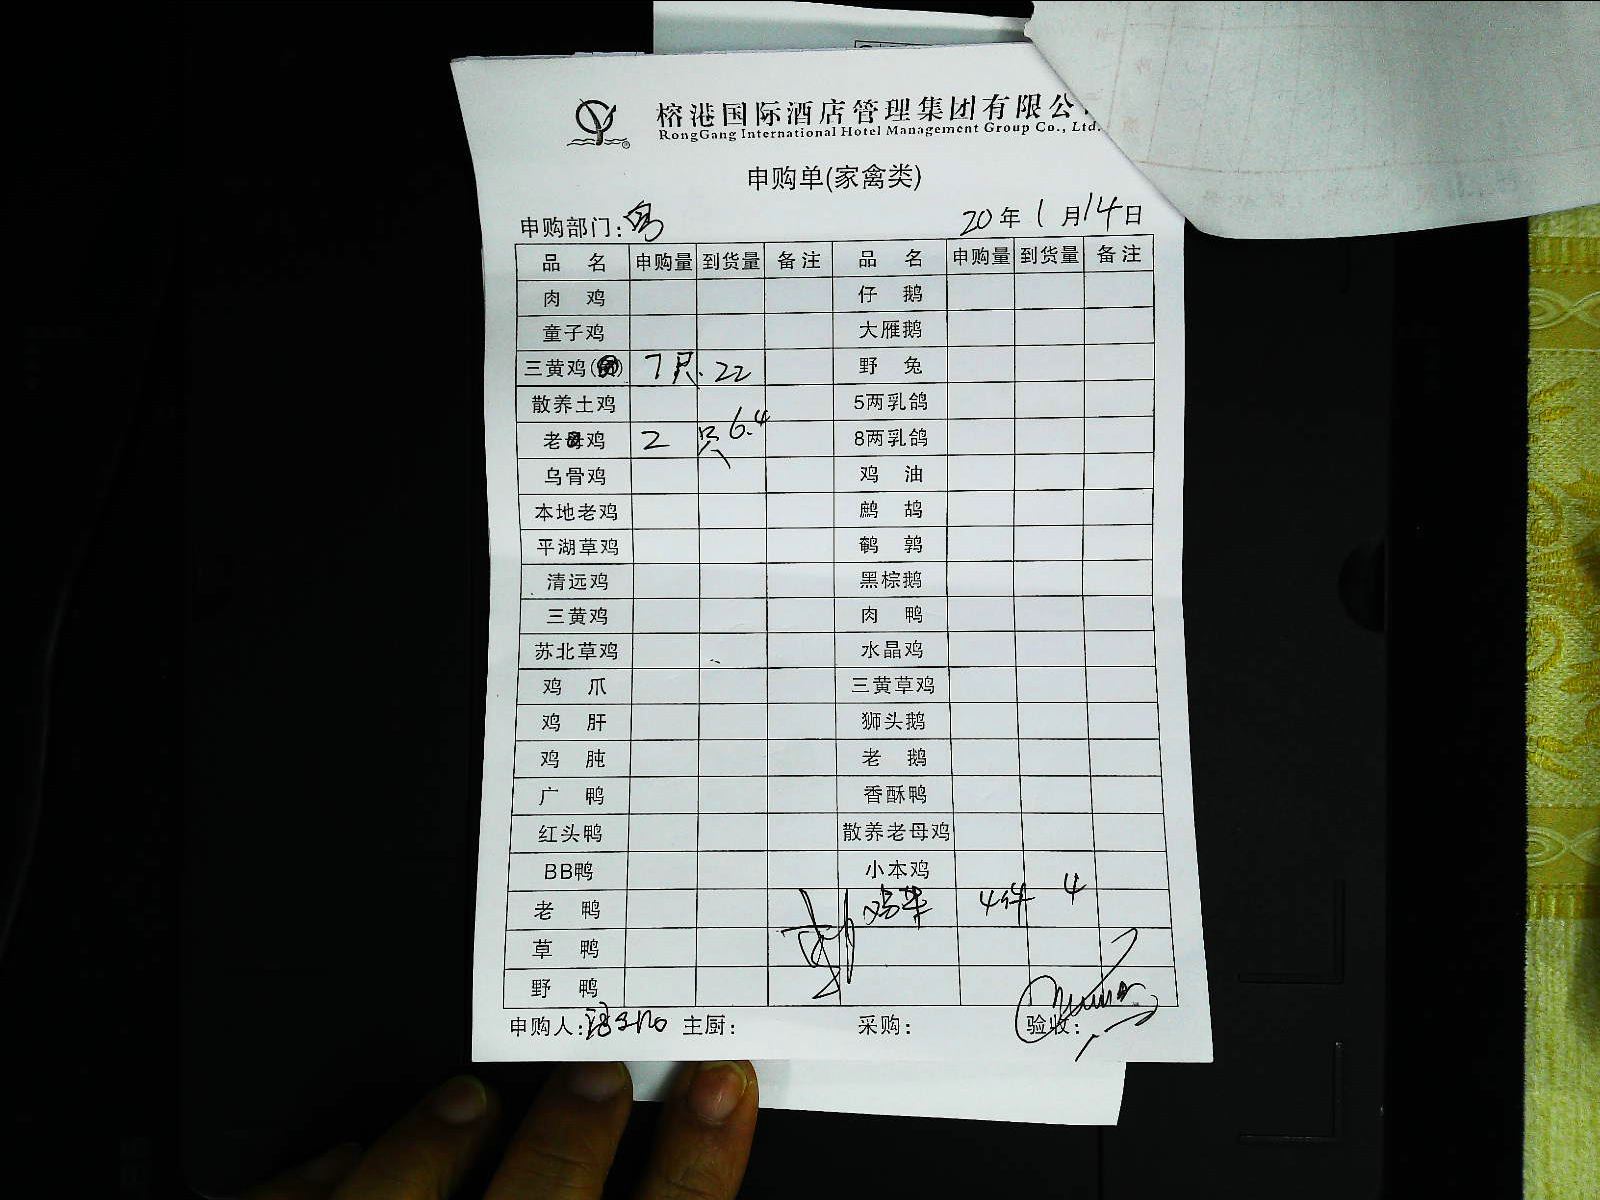 榕港国际酒店管理集团有限公
RongGang International Hotel Management Group Co., Ltd.
申购单(家禽类)
申购部门: 20年1月14日
品名 申购量 到货量 备注 品名 申购量 到货量 备注
肉鸡 仔鹅
童子鸡 大雁鹅
三黄鸡( ) 7只 22 野兔
散养土鸡 5两乳鸽
老母鸡 2只 6.4 8两乳鸽
乌骨鸡 鸡油
本地老鸡 鹧鸪
平湖草鸡 鹌鹑
清远鸡 黑棕鹅
三黄鸡 肉鸭
苏北草鸡 水晶鸡
鸡爪 三黄草鸡
鸡肝 狮头鹅
鸡肫 老鹅
广鸭 香酥鸭
红头鸭 散养老母鸡
BB鸭 小本鸡
老鸭 4件 4
草鸭
野鸭
申购人: 主厨: 采购: 验收: